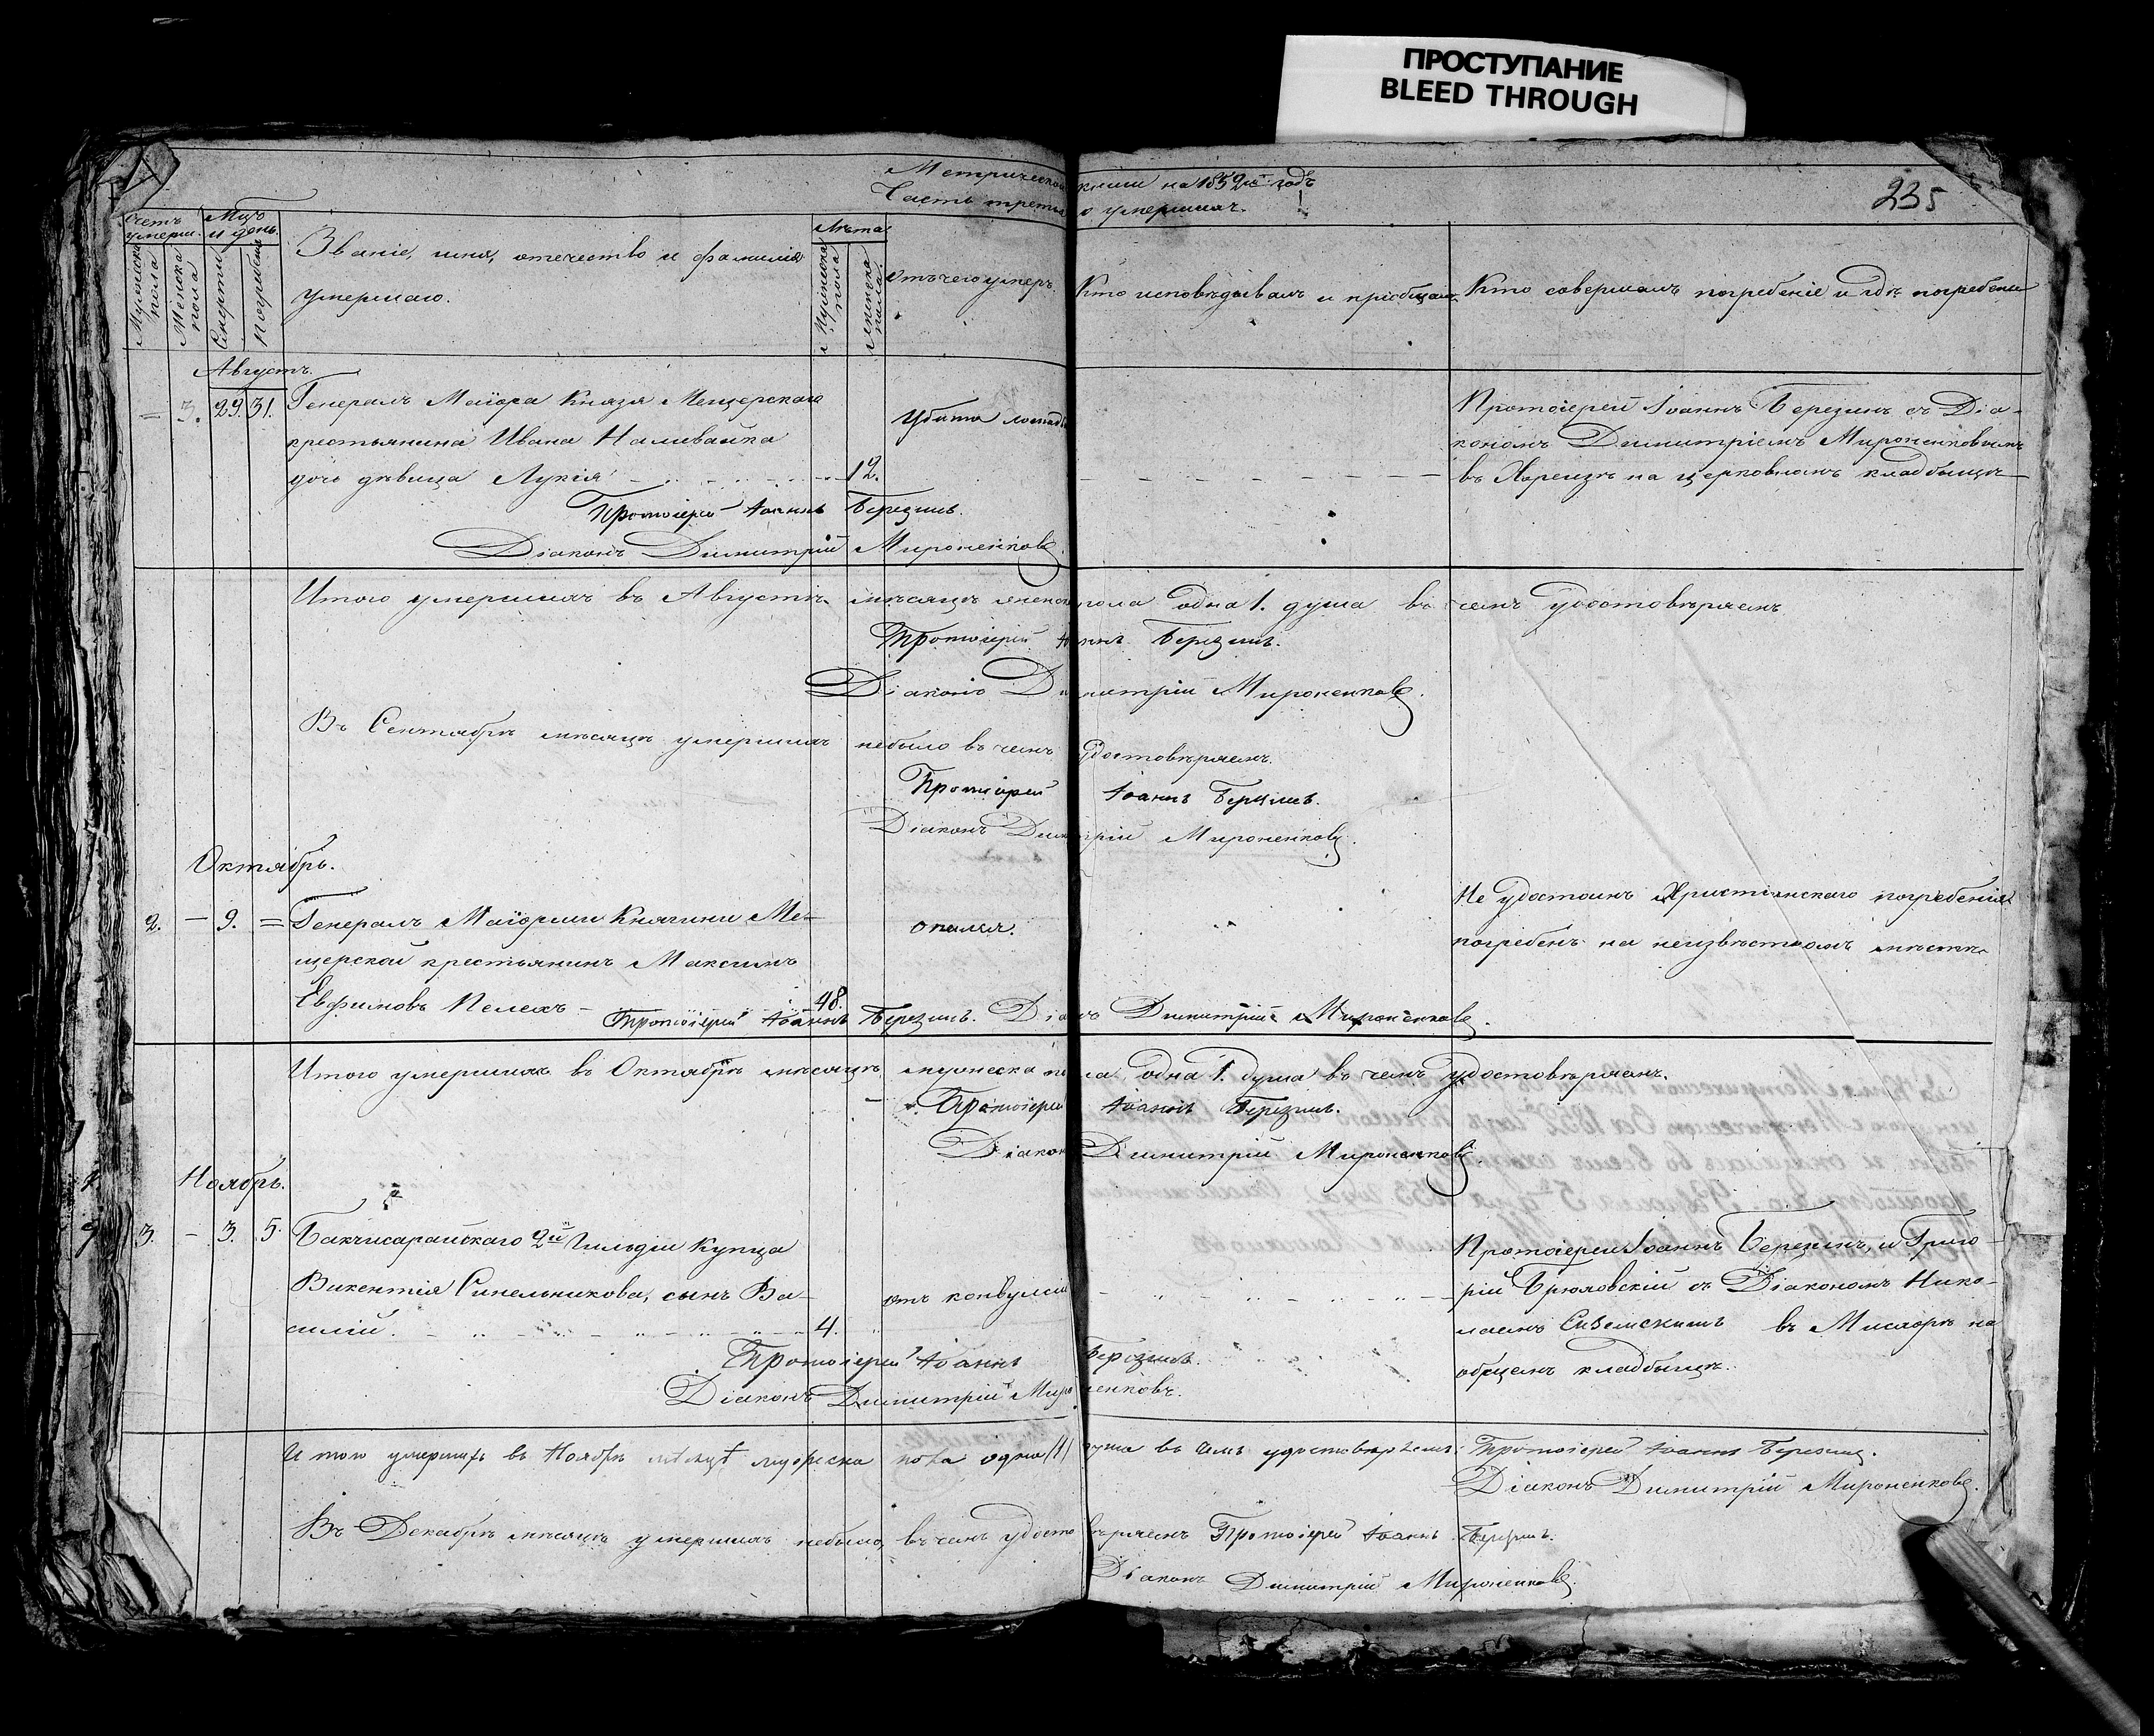 ПРОСТУПАНИЕ
BLEED THROUGH
Метрической книги на 1852й годъ
Часть третья о умершихъ.
235
Счетъ умерш.
Мужеска пола
Женска пола
Мцъ и день.
Смерти
Погребенія
Званіе, имя, отечество и фамилія
умершаго.
Лѣта
Мужеска пола
Женска пола
Отъ чего умеръ.
Кто исповѣдывалъ и пріобщалъ
Кто совершалъ погребеніе и гдѣ погребены
Августъ.
— 3. 29. 31. Генералъ Маіора Князя Мещерскаго Убита лошадью Протоіерей Іоаннъ Березинъ съ Діа-
крестьянина Ивана Наливайка кономъ Димитріемъ Мироненковымъ
дочь дѣвица Лукія 12. въ Кореизѣ на церковномъ кладбищѣ
Протоіерей Іоаннъ Березинъ.
Діаконъ Димитрій Мироненковъ.
Итого умершихъ въ Августѣ мѣсяцѣ женска пола одна 1. душа въ чемъ удостовѣряемъ
Протоіерей Іоаннъ Березинъ.
Діаконъ Димитрій Мироненковъ.
Въ Сентябрѣ мѣсяцѣ умершихъ небыло въ чемъ удостовѣряемъ.
Протоіерей Іоаннъ Березинъ.
Діаконъ Димитрій Мироненковъ.
Октябрь.
2. — 9. = Генералъ Маіорши Княгини Ме- опился. Не удостоинъ Христіянскаго погребенія
щерской крестьянинъ Максимъ погребенъ на неизвѣстномъ мѣстѣ
Евфимовъ Пелехъ — 48.
Протоіерей Іоаннъ Березинъ. Діаконъ Димитрій Мироненковъ.
Итого умершихъ въ Октябрѣ мѣсяцѣ мужеска пола одна 1. душа въ чемъ удостовѣряемъ.
Протоіерей Іоаннъ Березинъ.
Діаконъ Димитрій Мироненковъ.
Ноябрь.
3. — 3. 5. Бакчисарайскаго 2й Гильдіи Купца Протоіереи Іоаннъ Березинъ, и Григо-
Викентія Синельникова, сынъ Ва- отъ конвульсіи рій с Діакономъ Нико-
силій. 4. лаемъ въ Мисхорѣ на
Протоіерей Іоаннъ Березинъ. общемъ кладбищѣ.
Діаконъ Димитрій Мироненковъ.
Итого умершихъ въ Ноябрѣ мѣсяцѣ мужеска пола одна (1) душа въ чемъ удостовѣряемъ: Протоіерей Іоаннъ Березинъ.
Діаконъ Димитрій Мироненковъ.
Въ Декабрѣ мѣсяцѣ умершихъ небыло, въ чемъ удостовѣряемъ Протоіерей Іоаннъ Березинъ.
Діаконъ Димитрій Мироненковъ.